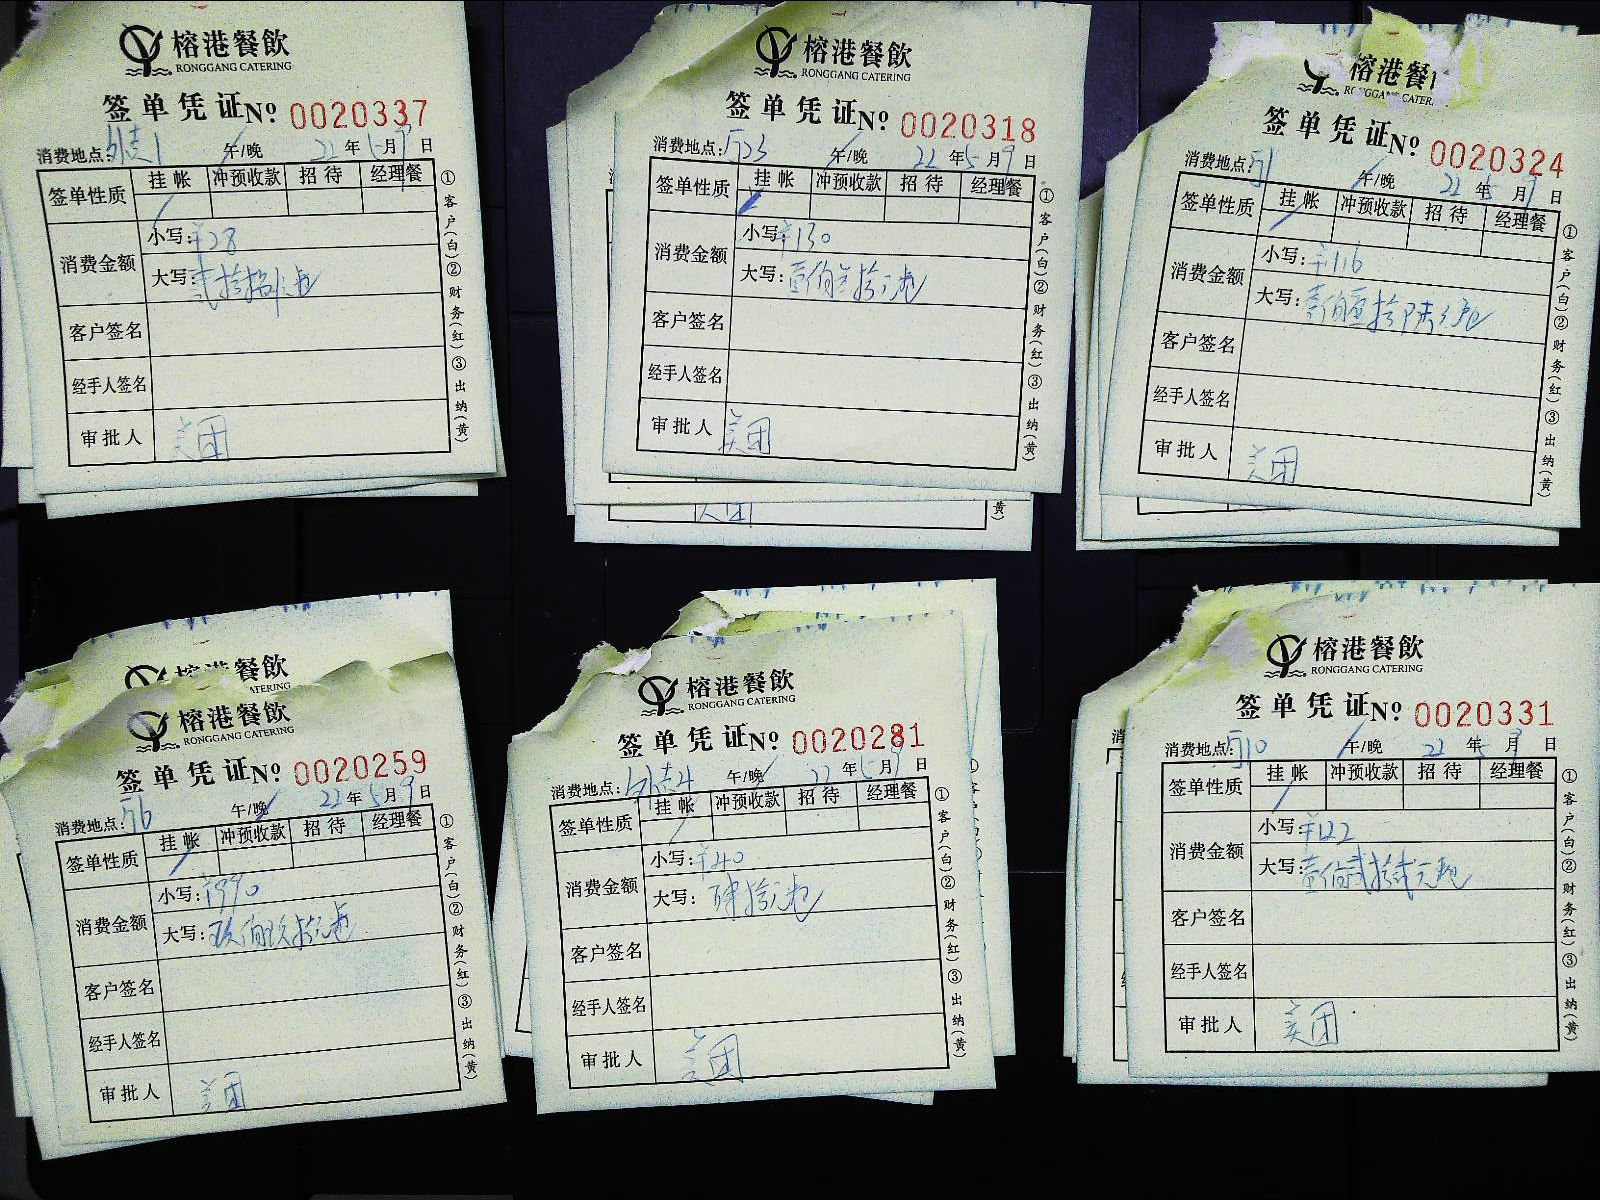 榕港餐飲
RONGGANG CATERING
签单凭证 Nº 0020337
消费地点: 外卖1 午/晚 22年5月9日
签单性质 挂帐 冲预收款 招待 经理餐
消费金额
小写: ¥28
大写: 贰拾捌元
客户签名
经手人签名
审批人 美团
①客户(白)②财务(红)③出纳(黄)
榕港餐飲
RONGGANG CATERING
签单凭证 Nº 0020318
消费地点: 午/晚 22年5月9日
签单性质 挂帐 冲预收款 招待 经理餐
消费金额
小写: ¥130
大写: 壹佰叁拾元
客户签名
经手人签名
审批人 美团
①客户(白)②财务(红)③出纳(黄)
美团
黄)
榕港餐
签单凭证 Nº 0020324
消费地点: 午/晚 22年5月9日
签单性质 挂帐 冲预收款 招待 经理餐
消费金额
小写: ¥116
大写: 壹佰壹拾陆元
客户签名
经手人签名
审批人 美团
①客户(白)②财务(红)③出纳(黄)
榕港餐飲
榕港餐飲
RONGGANG CATERING
签单凭证 Nº 0020259
消费地点: 午/晚 22年5月9日
签单性质 挂帐 冲预收款 招待 经理餐
消费金额
小写: ¥990
大写: 玖佰玖拾元
客户签名
经手人签名
审批人 美团
①客户(白)②财务(红)③出纳(黄)
榕港餐飲
RONGGANG CATERING
签单凭证 Nº 0020281
消费地点: 外卖4 午/晚 22年5月9日
签单性质 挂帐 冲预收款 招待 经理餐
消费金额
小写: ¥40
大写: 肆拾元
客户签名
经手人签名
审批人 美团
①客户(白)②财务(红)③出纳(黄)
榕港餐飲
RONGGANG CATERING
签单凭证 Nº 0020331
消费地点: 午/晚 22年5月9日
签单性质 挂帐 冲预收款 招待 经理餐
消费金额
小写: ¥122
大写: 壹佰贰拾贰元
客户签名
经手人签名
审批人 美团
①客户(白)②财务(红)③出纳(黄)